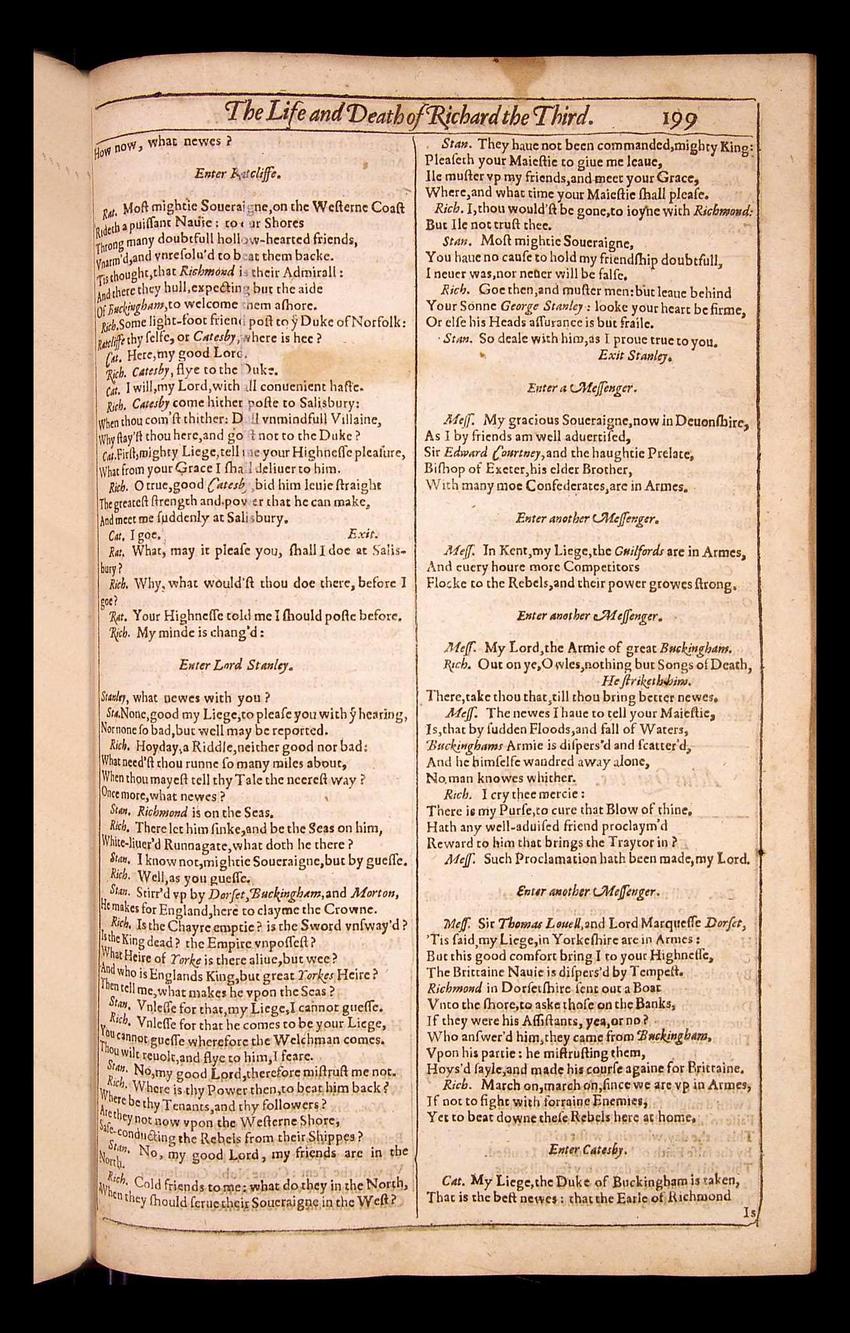 The Life and Death of Richard the Third. 199
How now, what newes ?
Enter Ratcliffe.
Rat. Moſt mightie Soueraigne,on the Weſterne Coaſt
Rideth a puiſſant Nauie : to our Shores
Throng many doubtfull hollow-hearted friends,
Vnarm'd,and vnreſolu'd to beat them backe.
'Tis thought,that Richmond is their Admirall :
And there they hull,expecting but the aide
Of Buckingham,to welcome them aſhore.
Rich.Some light-foot friend poſt to ẙ Duke of Norfolk:
Ratcliffe thy ſelfe, or Catesby, where is hee ?
Cat. Here,my good Lord.
Rich. Catesby, flye to the Duke.
Cat. I will,my Lord,with all conuenient haſte.
Rich. Catesby come hither poſte to Salisbury:
When thou com'ſt thither: Dull vnmindfull Villaine,
Why ſtay'ſt thou here,and go'ſt not to the Duke ?
Cat.Firſt,mighty Liege,tell me your Highneſſe pleaſure,
What from your Grace I ſhall deliuer to him.
Rich. O true,good Catesby, bid him leuie ſtraight
The greateſt ſtrength and power that he can make,
And meet me ſuddenly at Salisbury.
Cat. I goe. Exit.
Rat. What, may it pleaſe you, ſhall I doe at Salis-
bury ?
Rich. Why, what would'ſt thou doe there, before I
goe?
Rat. Your Highneſſe told me I ſhould poſte before.
Rich. My minde is chang'd :
Enter Lord Stanley.
Stanley, what newes with you ?
Sta.None,good my Liege,to pleaſe you with ẙ hearing,
Nor none ſo bad,but well may be reported.
Rich. Hoyday,a Riddle,neither good nor bad:
What need'ſt thou runne ſo many miles about,
When thou mayeſt tell thy Tale the neereſt way ?
Once more,what newes ?
Stan. Richmond is on the Seas.
Rich. There let him ſinke,and be the Seas on him,
White-liuer'd Runnagate,what doth he there ?
Stan. I know not,mightie Soueraigne,but by gueſſe.
Rich. Well,as you gueſſe.
Stan. Stirr'd vp by Dorſet,Buckingham,and Morton,
He makes for England,here to clayme the Crowne.
Rich. Is the Chayre emptie ? is the Sword vnſway'd ?
Is the King dead ? the Empire vnpoſſeſt ?
What Heire of Yorke is there aliue,but wee ?
And who is Englands King,but great Yorkes Heire ?
Then tell me,what makes he vpon the Seas ?
Stan. Vnleſſe for that,my Liege,I cannot gueſſe.
Rich. Vnleſſe for that he comes to be your Liege,
You cannot gueſſe wherefore the Welchman comes.
Thou wilt reuolt,and flye to him,I feare.
Stan. No,my good Lord,therefore miſtruſt me not.
Rich. Where is thy Power then,to beat him back ?
Where be thy Tenants,and thy followers ?
Are they not now vpon the Weſterne Shore,
Safe-conducting the Rebels from their Shippes ?
Stan. No, my good Lord, my friends are in the
North.
Rich. Cold friends to me: what do they in the North,
When they ſhould ſerue their Soueraigne in the Weſt ?
Stan. They haue not been commanded,mighty King:
Pleaſeth your Maieſtie to giue me leaue,
Ile muſter vp my friends,and meet your Grace,
Where,and what time your Maieſtie ſhall pleaſe.
Rich. I,thou would'ſt be gone,to ioyne with Richmond:
But Ile not truſt thee.
Stan. Moſt mightie Soueraigne,
You haue no cauſe to hold my friendſhip doubtfull,
I neuer was,nor neuer will be falſe.
Rich. Goe then,and muſter men:but leaue behind
Your Sonne George Stanley : looke your heart be firme,
Or elſe his Heads aſſurance is but fraile.
Stan. So deale with him,as I proue true to you.
Exit Stanley.
Enter a Meſſenger.
Meſſ. My gracious Soueraigne,now in Deuonſhire,
As I by friends am well aduertiſed,
Sir Edward Courtney,and the haughtie Prelate,
Biſhop of Exeter,his elder Brother,
With many moe Confederates,are in Armes.
Enter another Meſſenger.
Meſſ. In Kent,my Liege,the Guilfords are in Armes,
And euery houre more Competitors
Flocke to the Rebels,and their power growes ſtrong.
Enter another Meſſenger.
Meſſ. My Lord,the Armie of great Buckingham.
Rich. Out on ye,Owles,nothing but Songs of Death,
He ſtriketh him.
There,take thou that,till thou bring better newes.
Meſſ. The newes I haue to tell your Maieſtie,
Is,that by ſudden Floods,and fall of Waters,
Buckinghams Armie is diſpers'd and ſcatter'd,
And he himſelfe wandred away alone,
No man knowes whither.
Rich. I cry thee mercie :
There is my Purſe,to cure that Blow of thine.
Hath any well-aduiſed friend proclaym'd
Reward to him that brings the Traytor in ?
Meſſ. Such Proclamation hath been made,my Lord.
Enter another Meſſenger.
Meſſ. Sir Thomas Louell,and Lord Marqueſſe Dorſet,
'Tis ſaid,my Liege,in Yorkeſhire are in Armes :
But this good comfort bring I to your Highneſſe,
The Brittaine Nauie is diſpers'd by Tempeſt.
Richmond in Dorſetſhire ſent out a Boat
Vnto the ſhore,to aske thoſe on the Banks,
If they were his Aſſiſtants, yea,or no ?
Who anſwer'd him,they came from Buckingham,
Vpon his partie : he miſtruſting them,
Hoys'd ſayle,and made his courſe againe for Brittaine.
Rich. March on,march on,ſince we are vp in Armes,
If not to fight with forraine Enemies,
Yet to beat downe theſe Rebels here at home.
Enter Catesby.
Cat. My Liege,the Duke of Buckingham is taken,
That is the beſt newes : that the Earle of Richmond
Is